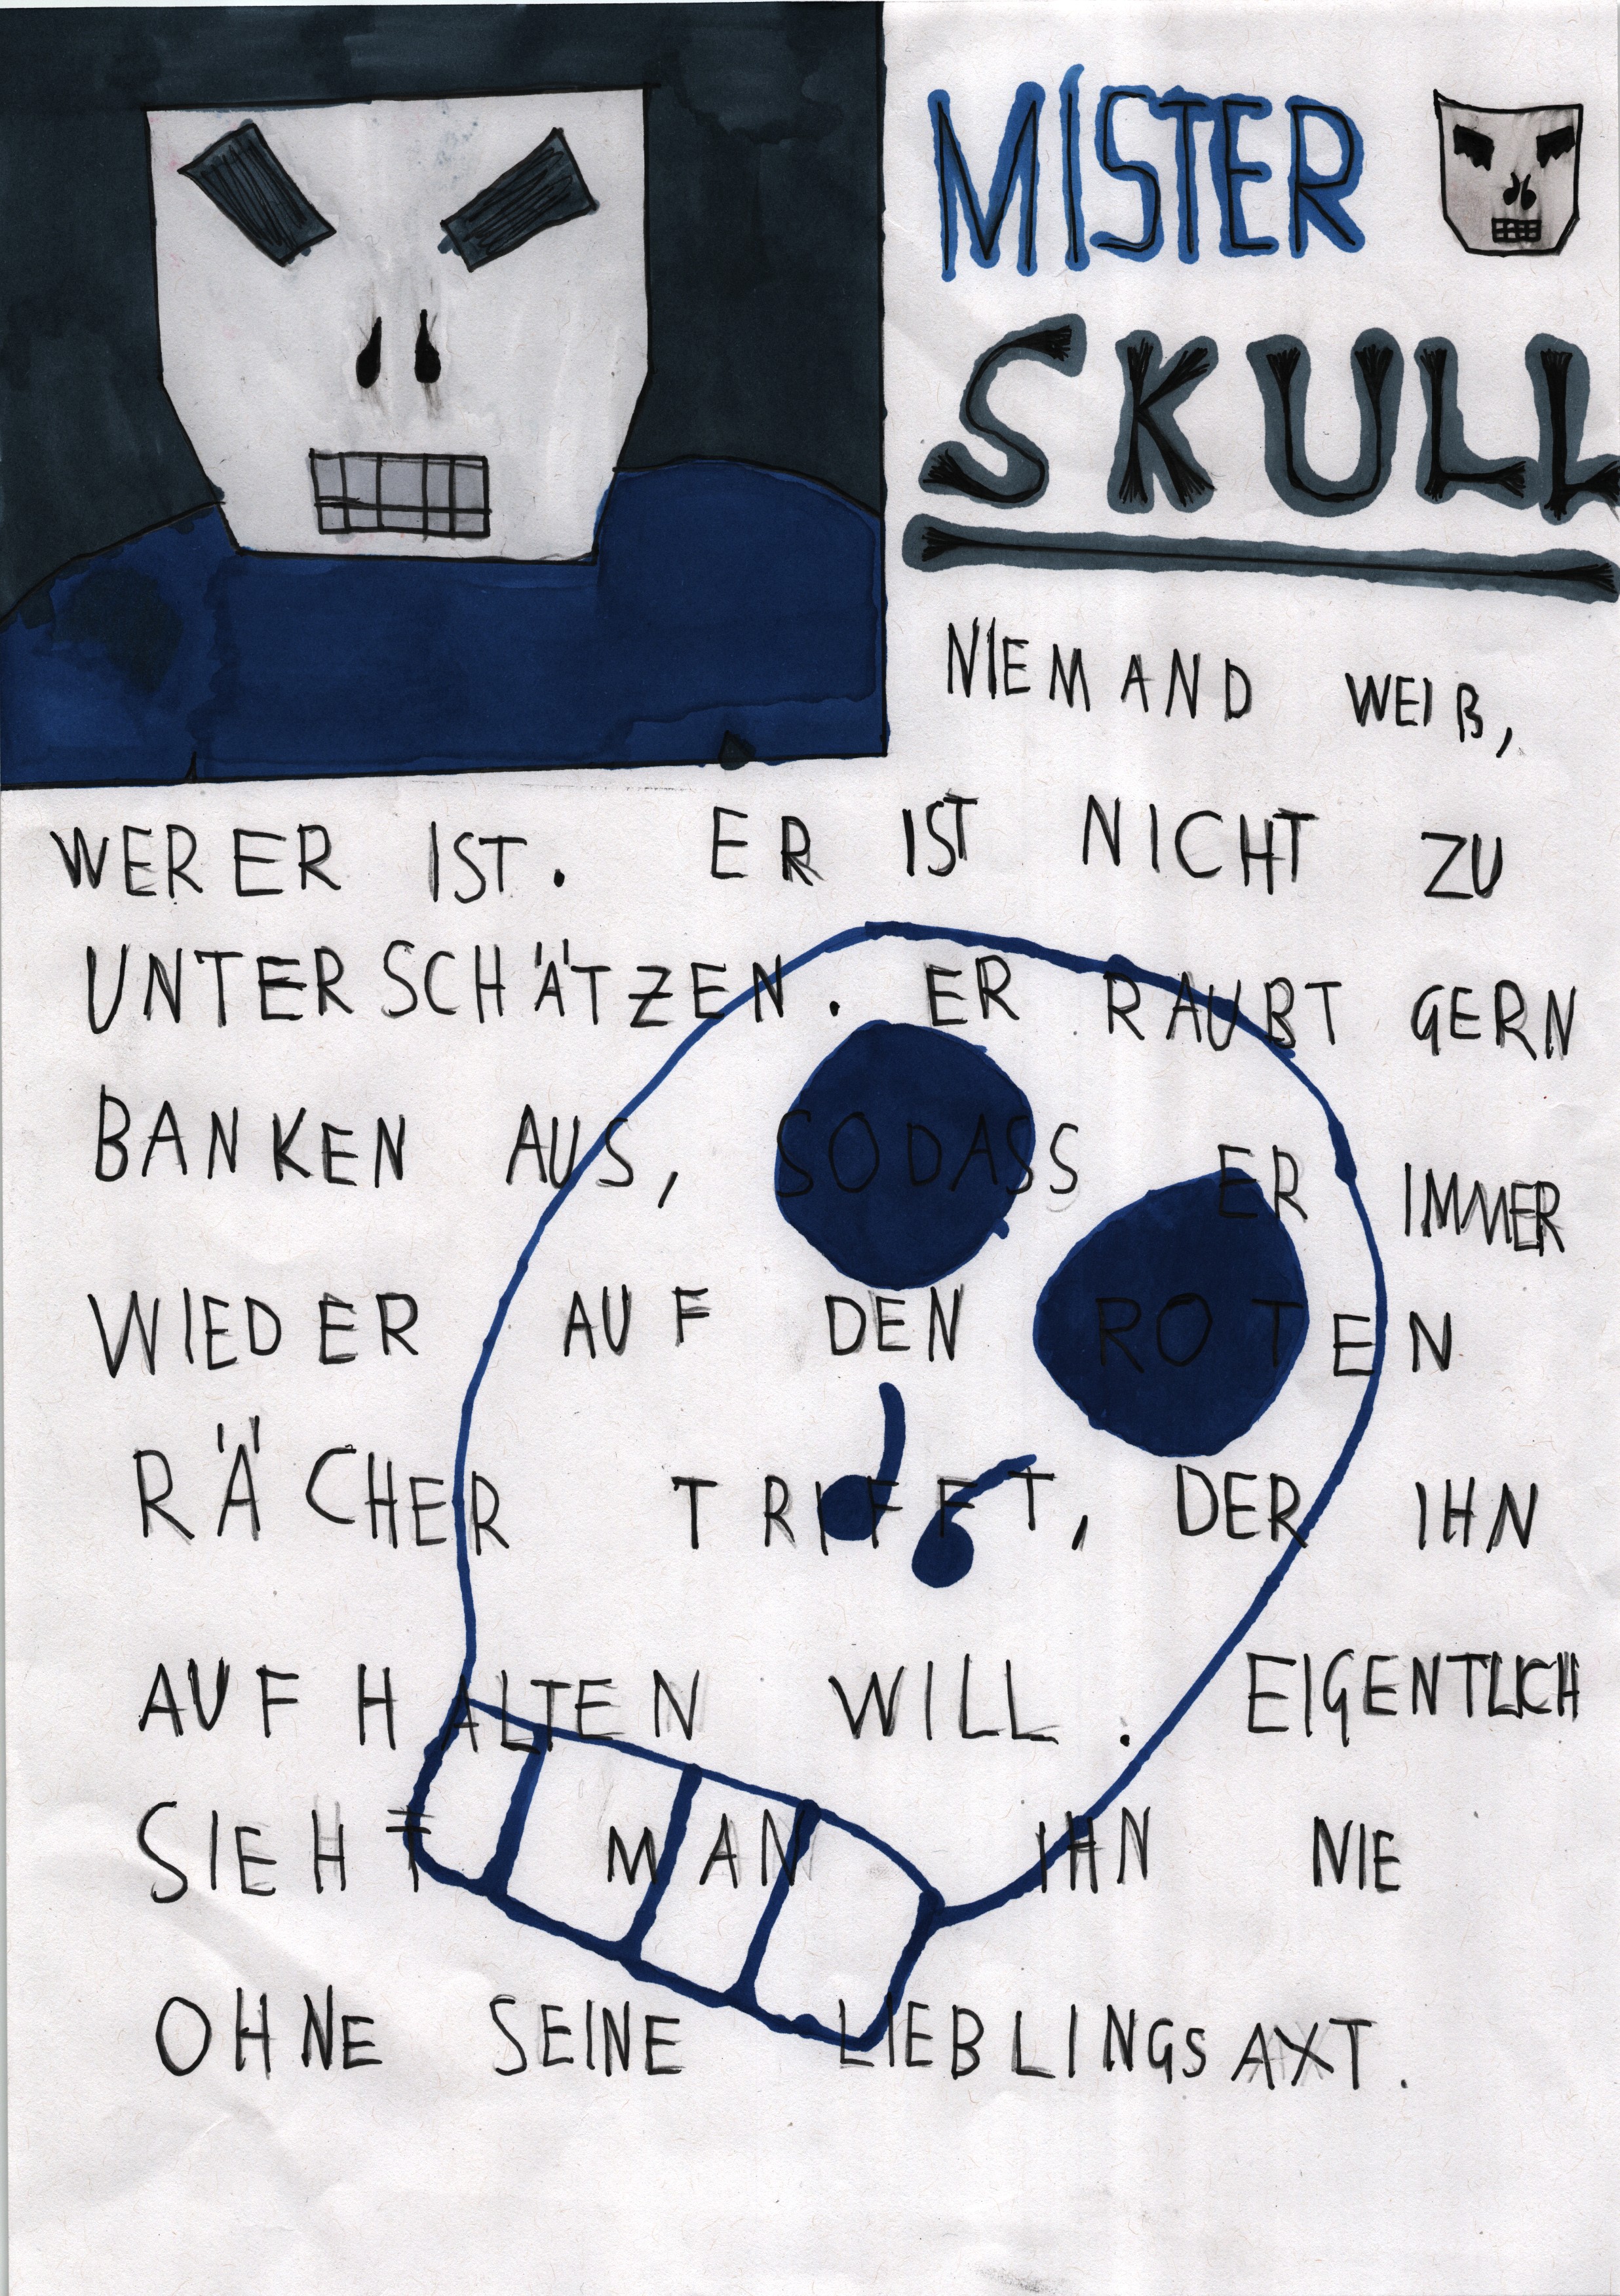 MISTER
SKULL
NIEMAND WEIß,
WER ER IST. ER IST NICHT ZU
UNTERSCHÄTZEN. ER RAUBT GERN
BANKEN AUS, SODASS ER IMMER
WIEDER AUF DEN ROTEN
RÄCHER TRIFFT, DER IHN
AUFHALTEN WILL. EIGENTLICH
SIEHT MAN IHN NIE
OHNE SEINE LIEBLINGSAXT.